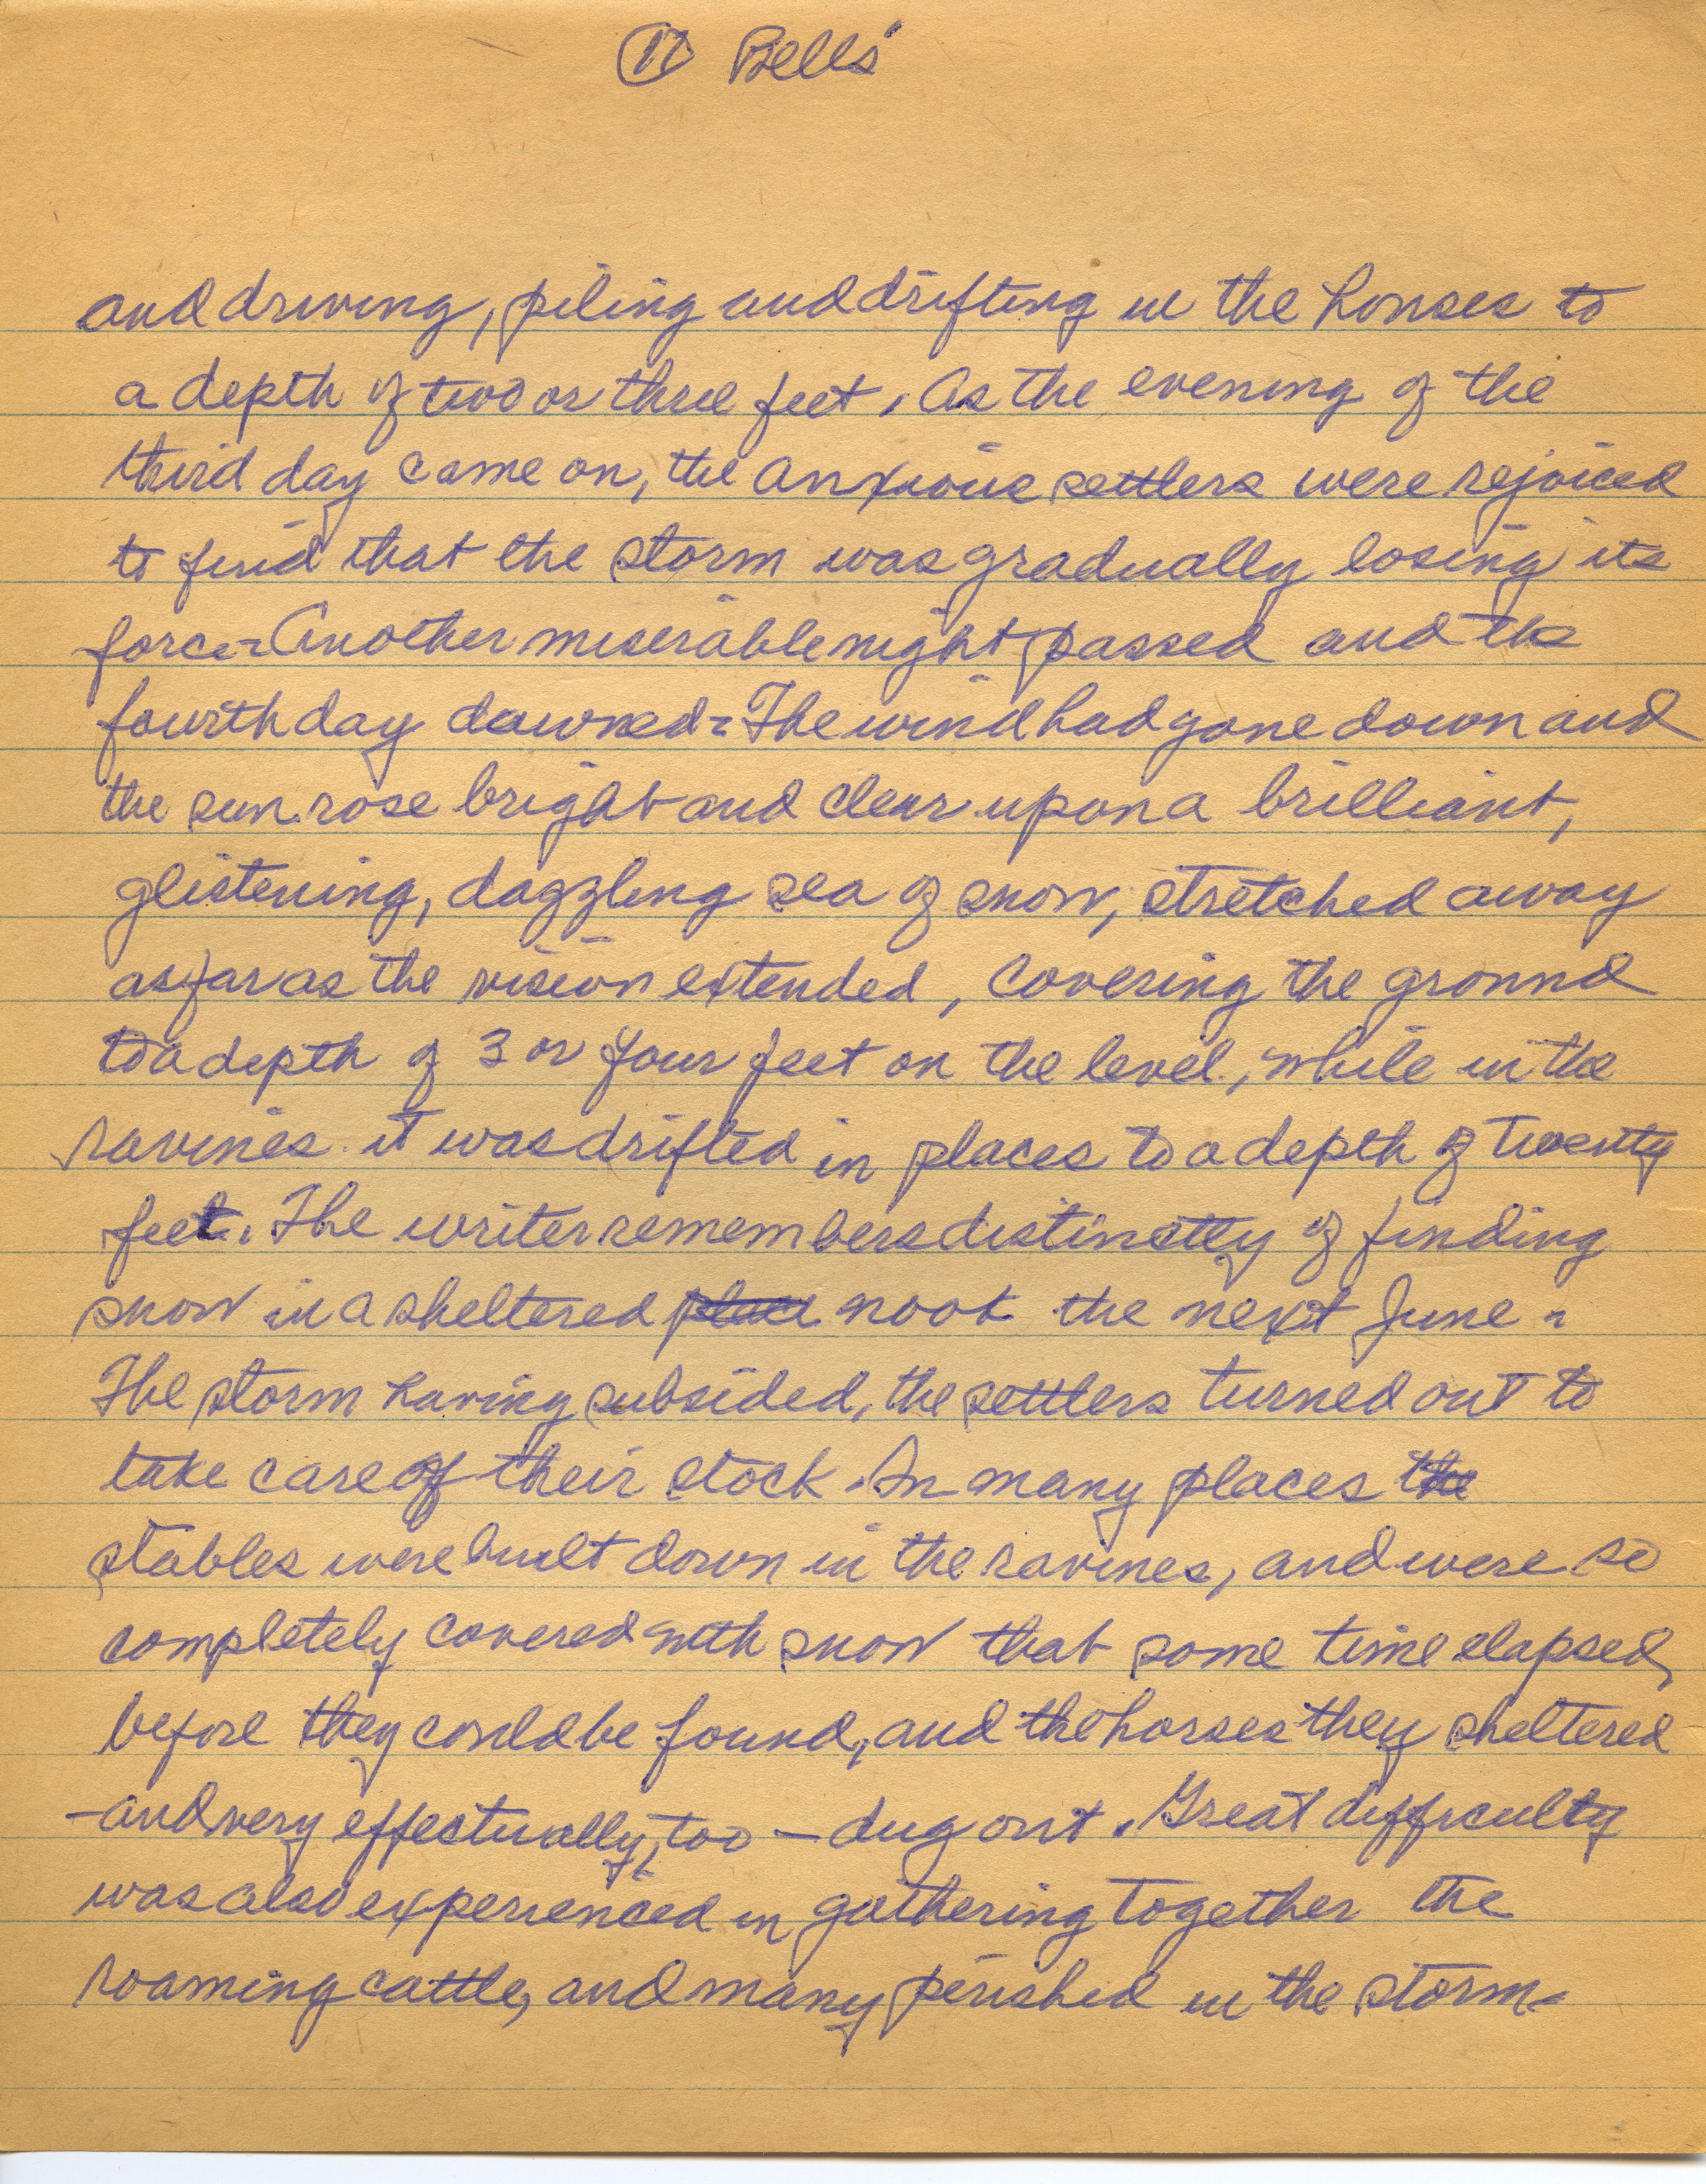 11 Bells'
and driving, piling and drifting in the houses to
a depth of two or three feet. As the evening of the
third day came on, the anxious settlers were rejoiced
to find that the storm was gradually losing its
force - Another miserable night passed and the
fourth day dawned - The wind had gone down and
the sun rose bright and clear upon a brilliant,
glistening, dazzling sea of snow, stretched away
as far as the vision extended, covering the ground
to a depth of 3 or four feet on the level, while in the
ravines it was drifted in places to a depth of twenty
feet. The writer remembers distinctly of finding
snow in a sheltered place nook the next June -
The storm having subsided, the settlers turned out to
take care of their stock. In many places the
stables were built down in the ravines, and were so
completely covered with snow that some time elapsed,
before they could be found, and the horses they sheltered
- and very effectually, too - dug out. Great difficulty
was also experienced in gathering together the
roaming cattle, and many perished in the storm -